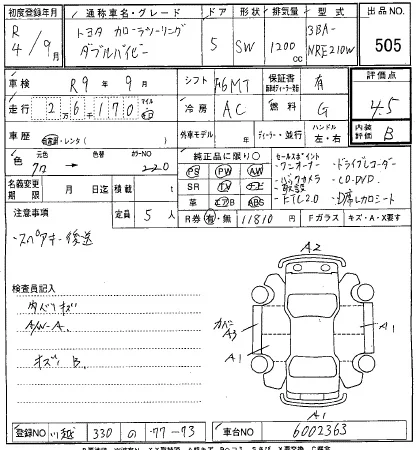 初度登録年月 通称車名・グレード ドア 形状 排気量 型式 出品NO.
R4/9月 トヨタ カローラツーリング ダブルバイビー 5 SW 1200cc 3BA-NRE210W 505
車検 R9年9月 シフト F6MT 保証書 有 評価点
走行 26170 マイル km 冷房 AC 燃料 G 4.5
車歴 自家用・レンタ( ) 外車モデル ディーラー・並行 ハンドル 左・右 内装評価 B
色 元色 クロ 色替 カラーNO 220 純正品に限り○ セールスポイント
PS PW AW ・ワンオーナー ・ドライブレコーダー
名義変更期限 月 日迄 積載 t SR TV ナビ ・バックカメラ ・CD・DVD
革 エアB ABS ・ETC2.0 ・D席レカロシート
注意事項 定員 5人 R券 有・無 11810円 Fガラス キズ・A・X要す
・スペアキー後送
検査員記入
内ベリキズ
A/W-A
キズ B
A2
カバーA3
A1
A1
A1
登録NO 川越 330 の 77-73 車台NO 6002363